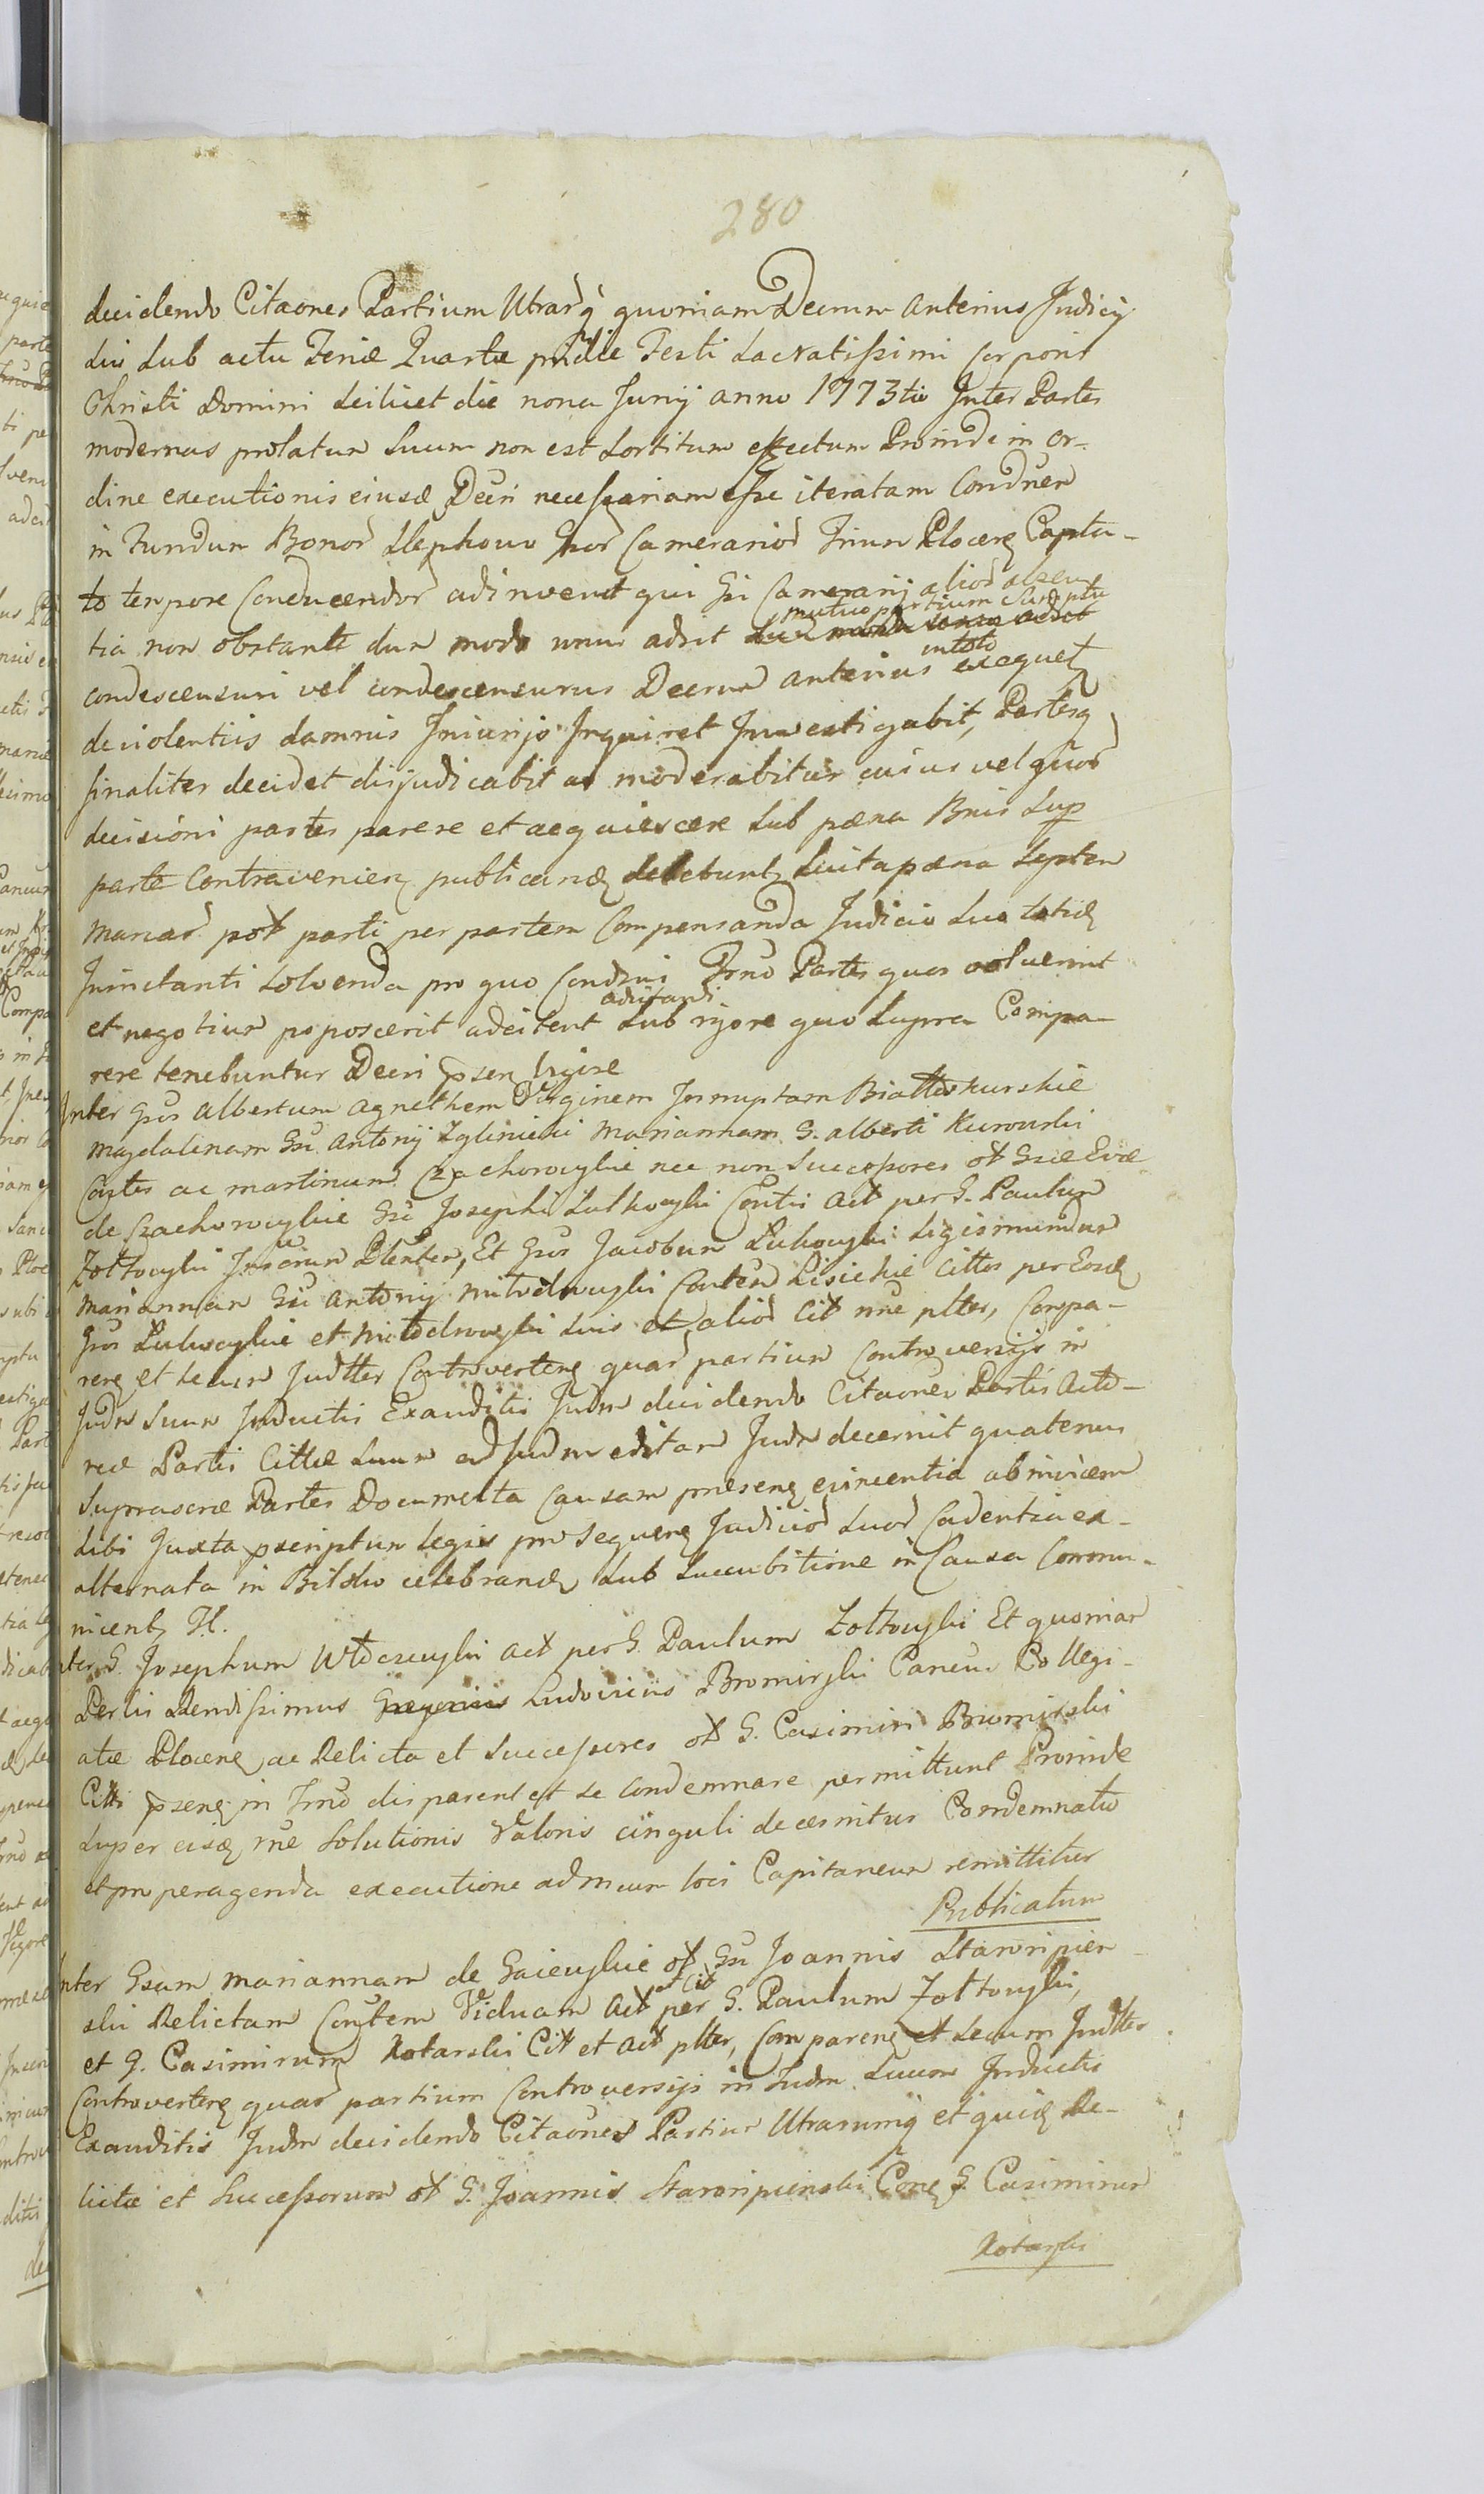 280
decidendo Citaones Partium Utrarq quoniam Decrum anterius Judicij
sui sub actu Feriæ Quartæ pridie Festi Sacratissimi Corporis
Christi Domini scilicet die nona Junij anno 1773tio Inter Partes
modernas prolatum suum non est sortitum effectum Proinde in or-
dine executionis eiusd Decri necessariam esse iteratam Condnem
in Fundum Bonor Slepkowo Gsor Camerarior Trium Plocen Capta-
to tempore Conducendor adinvenit qui Gsi Camerarij alior absen-
tia non obstante dum modo unus adsit mutuo partium sumptu
condescensuri vel condescensurus Decrum anterius in toto exequet
de violentiis damnis Iniurijs Inquiret Investigabit, Partesq
finaliter decidet disjudicabit ac moderabitur cuius vel quor
decisioni partes parere et acquiescere sub pæna Bnis sup
parte Contravenien publicand debebunt, pæna septem
marcar pol parti per partem Compensanda Judicio suo
solvenda pro quo Partes quas voluerint
et negotium poposcerit adcitent adcitandi sub rigore quo supra Compa-
rere tenebuntur Decri psen vigore
Inter Gsos Albertum Agnethem Virginem Innuptam
Magdalenam Gsi Antonij Zglinicki Mariannam G. Alberti Kurowski
Contes ac Martinum Czachorowskie nec non Successores ol Gsæ Evæ
de Czachorowskie Gsi Josephi Sutkowski Contis Act per G. Paulum
Zołtowski Plenter, Et Gsos Jacobum Sigismundum
Mariannam Gsi Antonij Contem Lisickie Cittos per Eosd
Gsos et suis et alior Cit nne plter, Compa-
ren et secum Judtter Controverten quar partium Controversijs in
Judm suum Inductis Exauditis Judm decidendo Citaones Partis Acto-
reæ Parti Cittæ suum ad Judm editam Judm decernit quatenus
Suprascræ Partes Documenta Causam præsen evincentia ab invicem
sibi Juxta præscriptum legis pro sequen Judicior suor Cadentia ex
alternata in Bilsko celebrand sub succubitione in Causa Commu-
nicent Il.
Inter G. Josephum Act per G. Paulum Zołtowski Et quoniam
Perlis Rendissimus Ludovicus Bromirski Caneus Collegi-
atæ Plocen ac Relicta et Successores ol G. Casimiri Bromirski
Citti psen in Trno disparent et se condemnare permittunt Proinde
super eisd rne solutionis Valoris cinguli decernitur Condemnatio
et pro peragenda executione ad Mcum loci Capitaneum remittitur
Publicatum
Inter Gsam Mariannam de Gaiewskie ol Gsi Joannis Staroripien-
ski Relictam Contem Viduam Act et Cit per G. Paulum Zołtowski,
et G. Casimirum Rotarski Cit et Act plter, Comparen et secum Judtter
Controverten quar partium Controversijs in Judm suum Inductis
Exauditis Judm decidendo Citaones Partium Utrarumq et quid Re-
lictæ et Successorum ol G. Joannis Staroripienski Con G. Casimirum
Rotarski